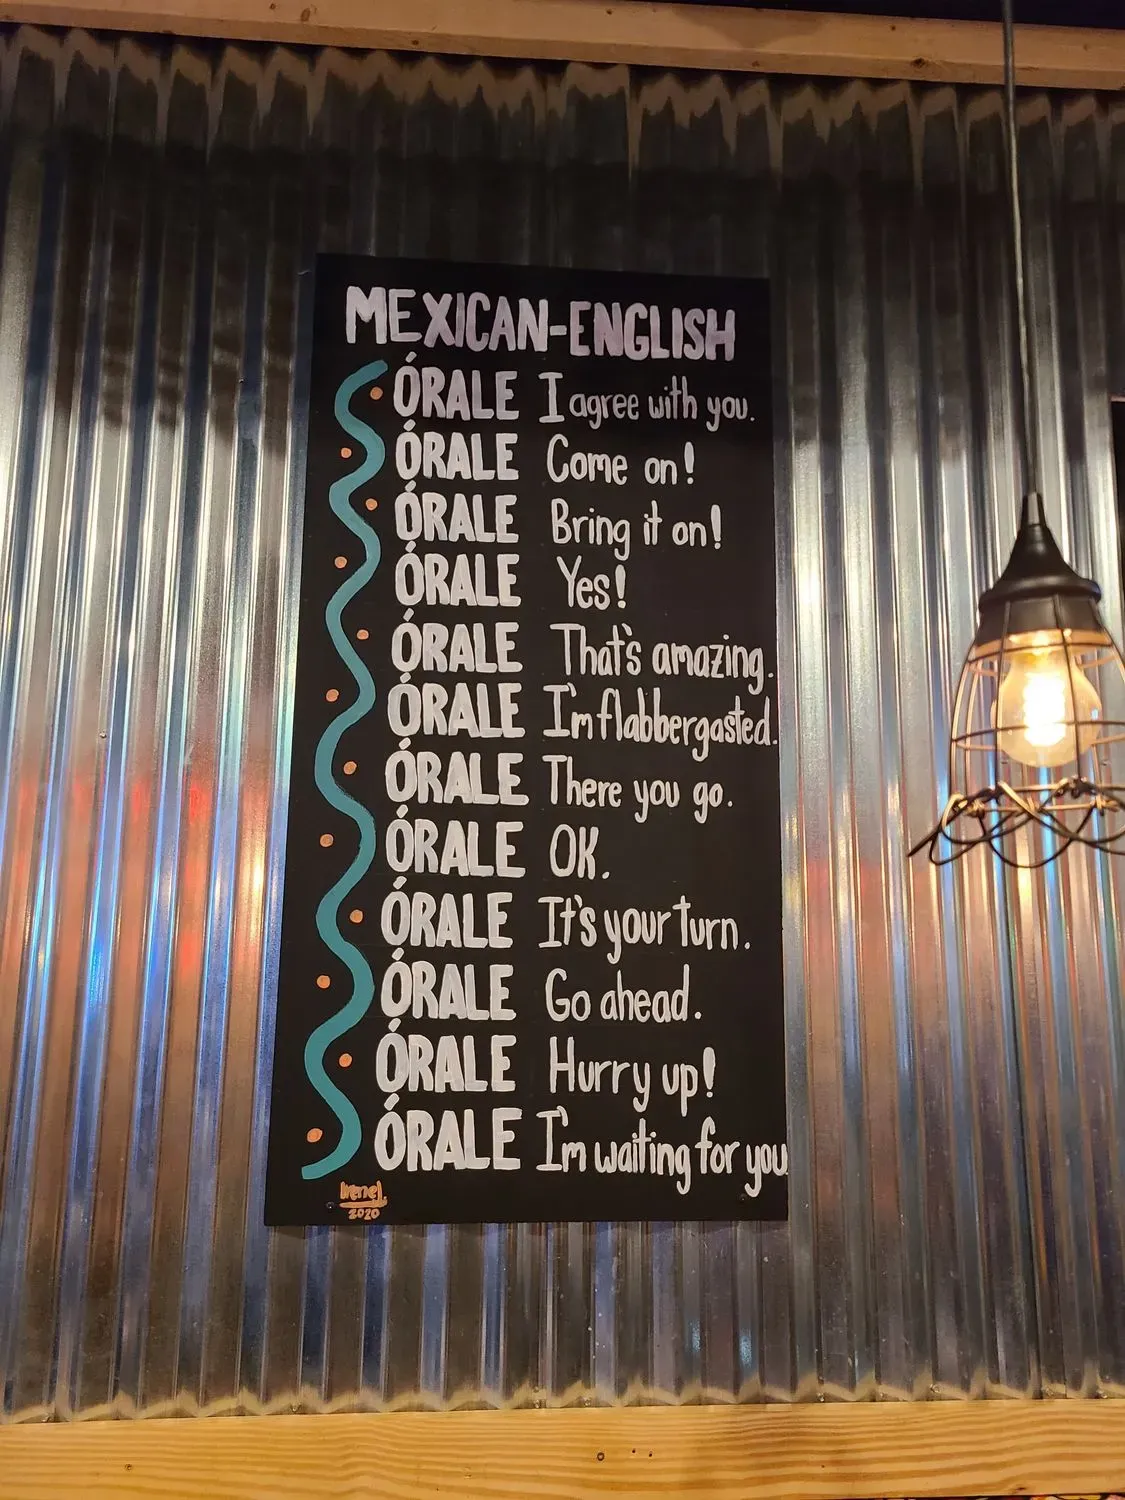 MEXICAN-ENGLISH
ÓRALE I agree with you.
ÓRALE Come on!
ÓRALE Bring it on!
ÓRALE Yes!
ÓRALE That's amazing.
ÓRALE I'm flabbergasted.
ÓRALE There you go.
ÓRALE OK.
ÓRALE It's your turn.
ÓRALE Go ahead.
ÓRALE Hurry up!
ÓRALE I'm waiting for you
2020